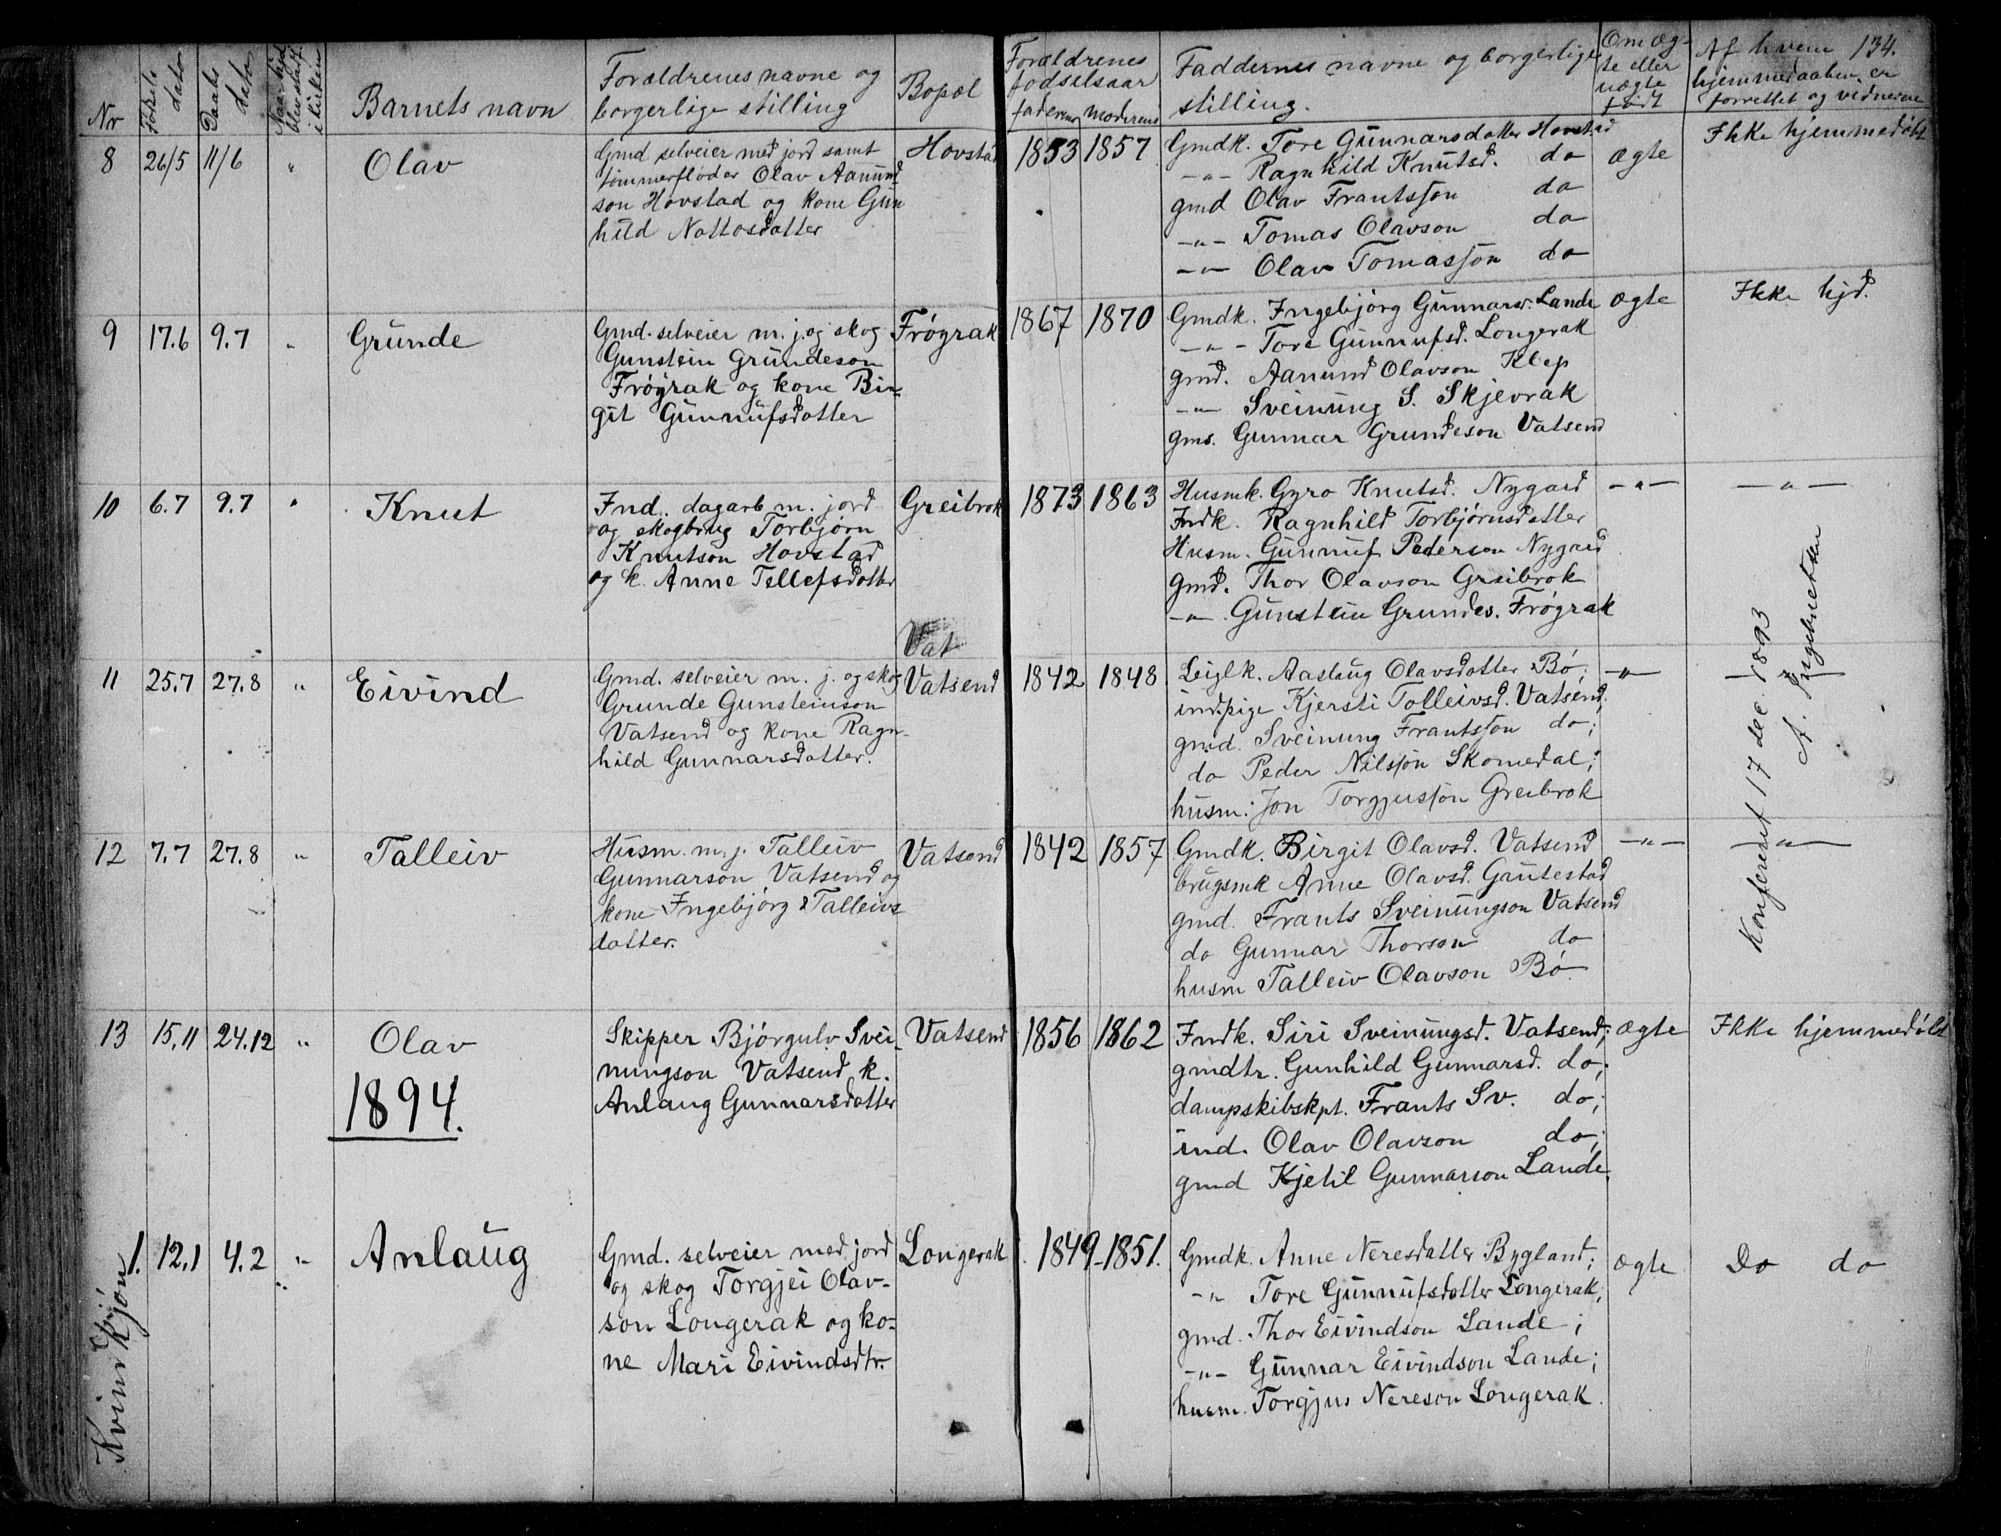 134.
Nr
Fødsels dato
Daabs dato
Barnets navn
Forældrenes navne og
borgerlige stilling
Bopæl
Forældrenes
fødselsaar
faderens moderens
Faddernes navne og borgerlige
stilling.
Om æg-
te eller
uægte
født
Af hvem
hjemmedaaben er
forrettet og vidnerne
8 26/5 11/6 " Olav
Gmd selveier med jord samt
tømmerfløder Olav Aanund
son Hovstad og kone Gun
hild Nottosdatter
Hovstad
1853 1857
Gmdk. Tore Gunnarsdatter Hovstad
-"- Ragnhild Knutsd. do
gmd Olav Frantsson do
-"- Tomas Olavson do
-"- Olav Tomasson do
ægte
Ikke hjemmedøbt
9 17.6 9.7 " Grunde
Gmd. selveier m. j. og skog
Gunstein Grundeson
Frøyrak og kone Bir-
git Gunnufsdatter
Frøyrak
1867 1870
Gmdk. Ingebjørg Gunnarsd. Lande
-"- Tore Gunnufsd. Longerak
gmd. Aanund Olavson Klep
-"- Sveinung S. Skjevrak
gms. Gunnar Grundeson Vatsend
ægte
Ikke hjd.
10 6.7 9.7 " Knut
Ind. dagarb m. jord
og skogbrug Torbjørn
Knutson Hovstad
og k. Anne Tellefsdatter
Greibrok
1873 1863
Husmk. Gyro Knutsd. Nygard
Indk. Ragnhild Torbjørnsdatter
Husm. Gunnuf Pederson Nygard
gmd. Thor Olavson Greibrok
-"- Gunstein Grundes. Frøyrak
-"-
-"-
Vat
11 25.7 27.8 " Eivind
Gmd. selveier m. j. og skog
Grunde Gunsteinson
Vatsend og kone Ragn-
hild Gunnarsdatter.
Vatsend
1842 1848
Leiglk. Aaslaug Olavsdatter Bø;
ind.pige Kjersti Tolleivsd. Vatsend;
gmd. Sveinung Frantsson do;
do Peder Nilsson Skomedal;
husm: Jon Torgjusson Greibrok
-"-
-"-
12 7.7 27.8 " Talleiv
Husm. m. j. Talleiv
Gunnarson Vatsend og
kone Ingebjørg Talleivs
datter.
Vatsend
1842 1857
Gmdk. Birgit Olavsd. Vatsend
brugsmk Anne Olavsd. Gautestad
gmd. Frants Sveinungson Vatsend
do Gunnar Thorson do
husm Talleiv Olavson Bø
-"-
-"-
Konfereret 17 dec. 1893
A. Ingebretsen
13 15.11 24.12 " Olav
Skipper Bjørgulv Svei-
nungson Vatsend k.
Anlaug Gunnarsdatter
Vatsend
1856 1862
Indk. Siri Sveinungsd. Vatsend;
gmdtr. Gunhild Gunnarsd. do;
dampskibskpt. Frants Sv. do;
ind. Olav Olavson do;
gmd Kjetil Gunnarson Lande
ægte
Ikke hjemmedøbt
1894.
Kvindekjøn
1. 12.1 4.2 " Anlaug
Gmd. selveier med jord
og skog Torgjei Olav-
son Longerak og ko-
ne Mari Eivindsdtr.
Longerak
1849-1851.
Gmdk. Anne Neresdatter Bygland;
-"- Tore Gunnufsdatter Longerak;
gmd. Thor Eivindson Lande;
-"- Gunnar Eivindson Lande;
husm. Torgjus Nereson Longerak.
ægte
Do do